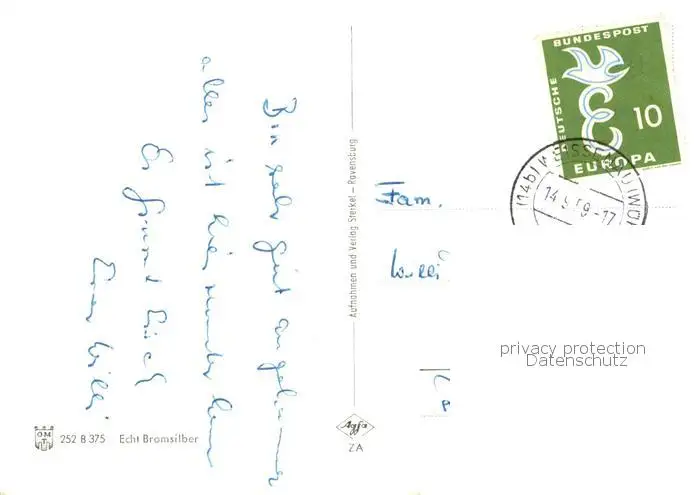 Bin sehr gut angekommen
alles ist hier wunder
Es grüsst Euch
Euer Willi
Fam.
Willi
DEUTSCHE
BUNDESPOST
10
EUROPA
(14b)
14.9.59-17
Aufnahmen und Verlag Sterkel – Ravensburg
privacy protection
Datenschutz
OMT
252 B 375 Echt Bromsilber
Agfa
ZA